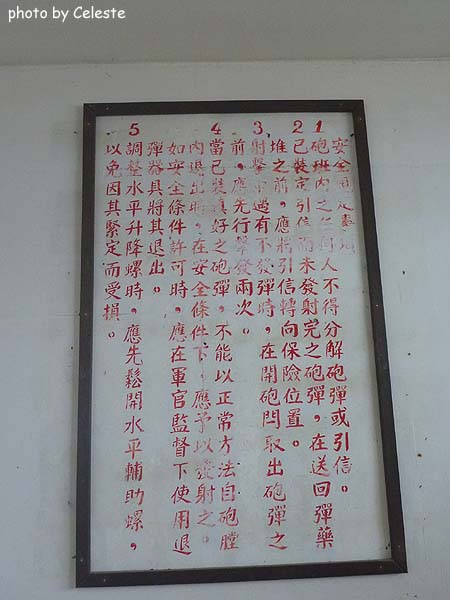 photo by Celeste
安全規定事項
1 砲班內之任何人不得分解砲彈或引信。
2 已裝定引信而未發射完之砲彈，在送回彈藥
堆之前，應將引信轉向保險位置。
3. 射擊中遇有不發彈時，在開砲閂取出砲彈之
前，應先行擊發兩次。
4 當已裝填好之砲彈，不能以正常方法自砲膛
內退出時，在安全條件下，應予以發射之。
如安全條件許可時，應在軍官監督下使用退
彈器具將其退出。
5 調整水平升降螺時，應先鬆開水平輔助螺，
以免因其緊定而受損。